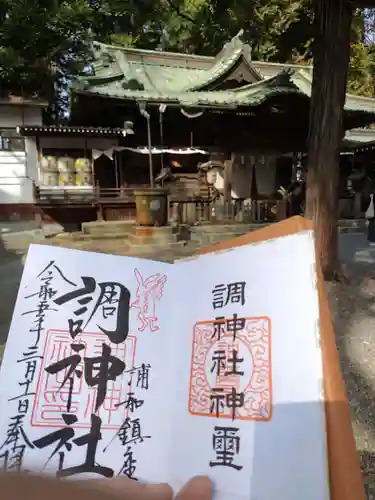 調神社神璽
浦和鎮座
調神社
令和五年三月十日奉